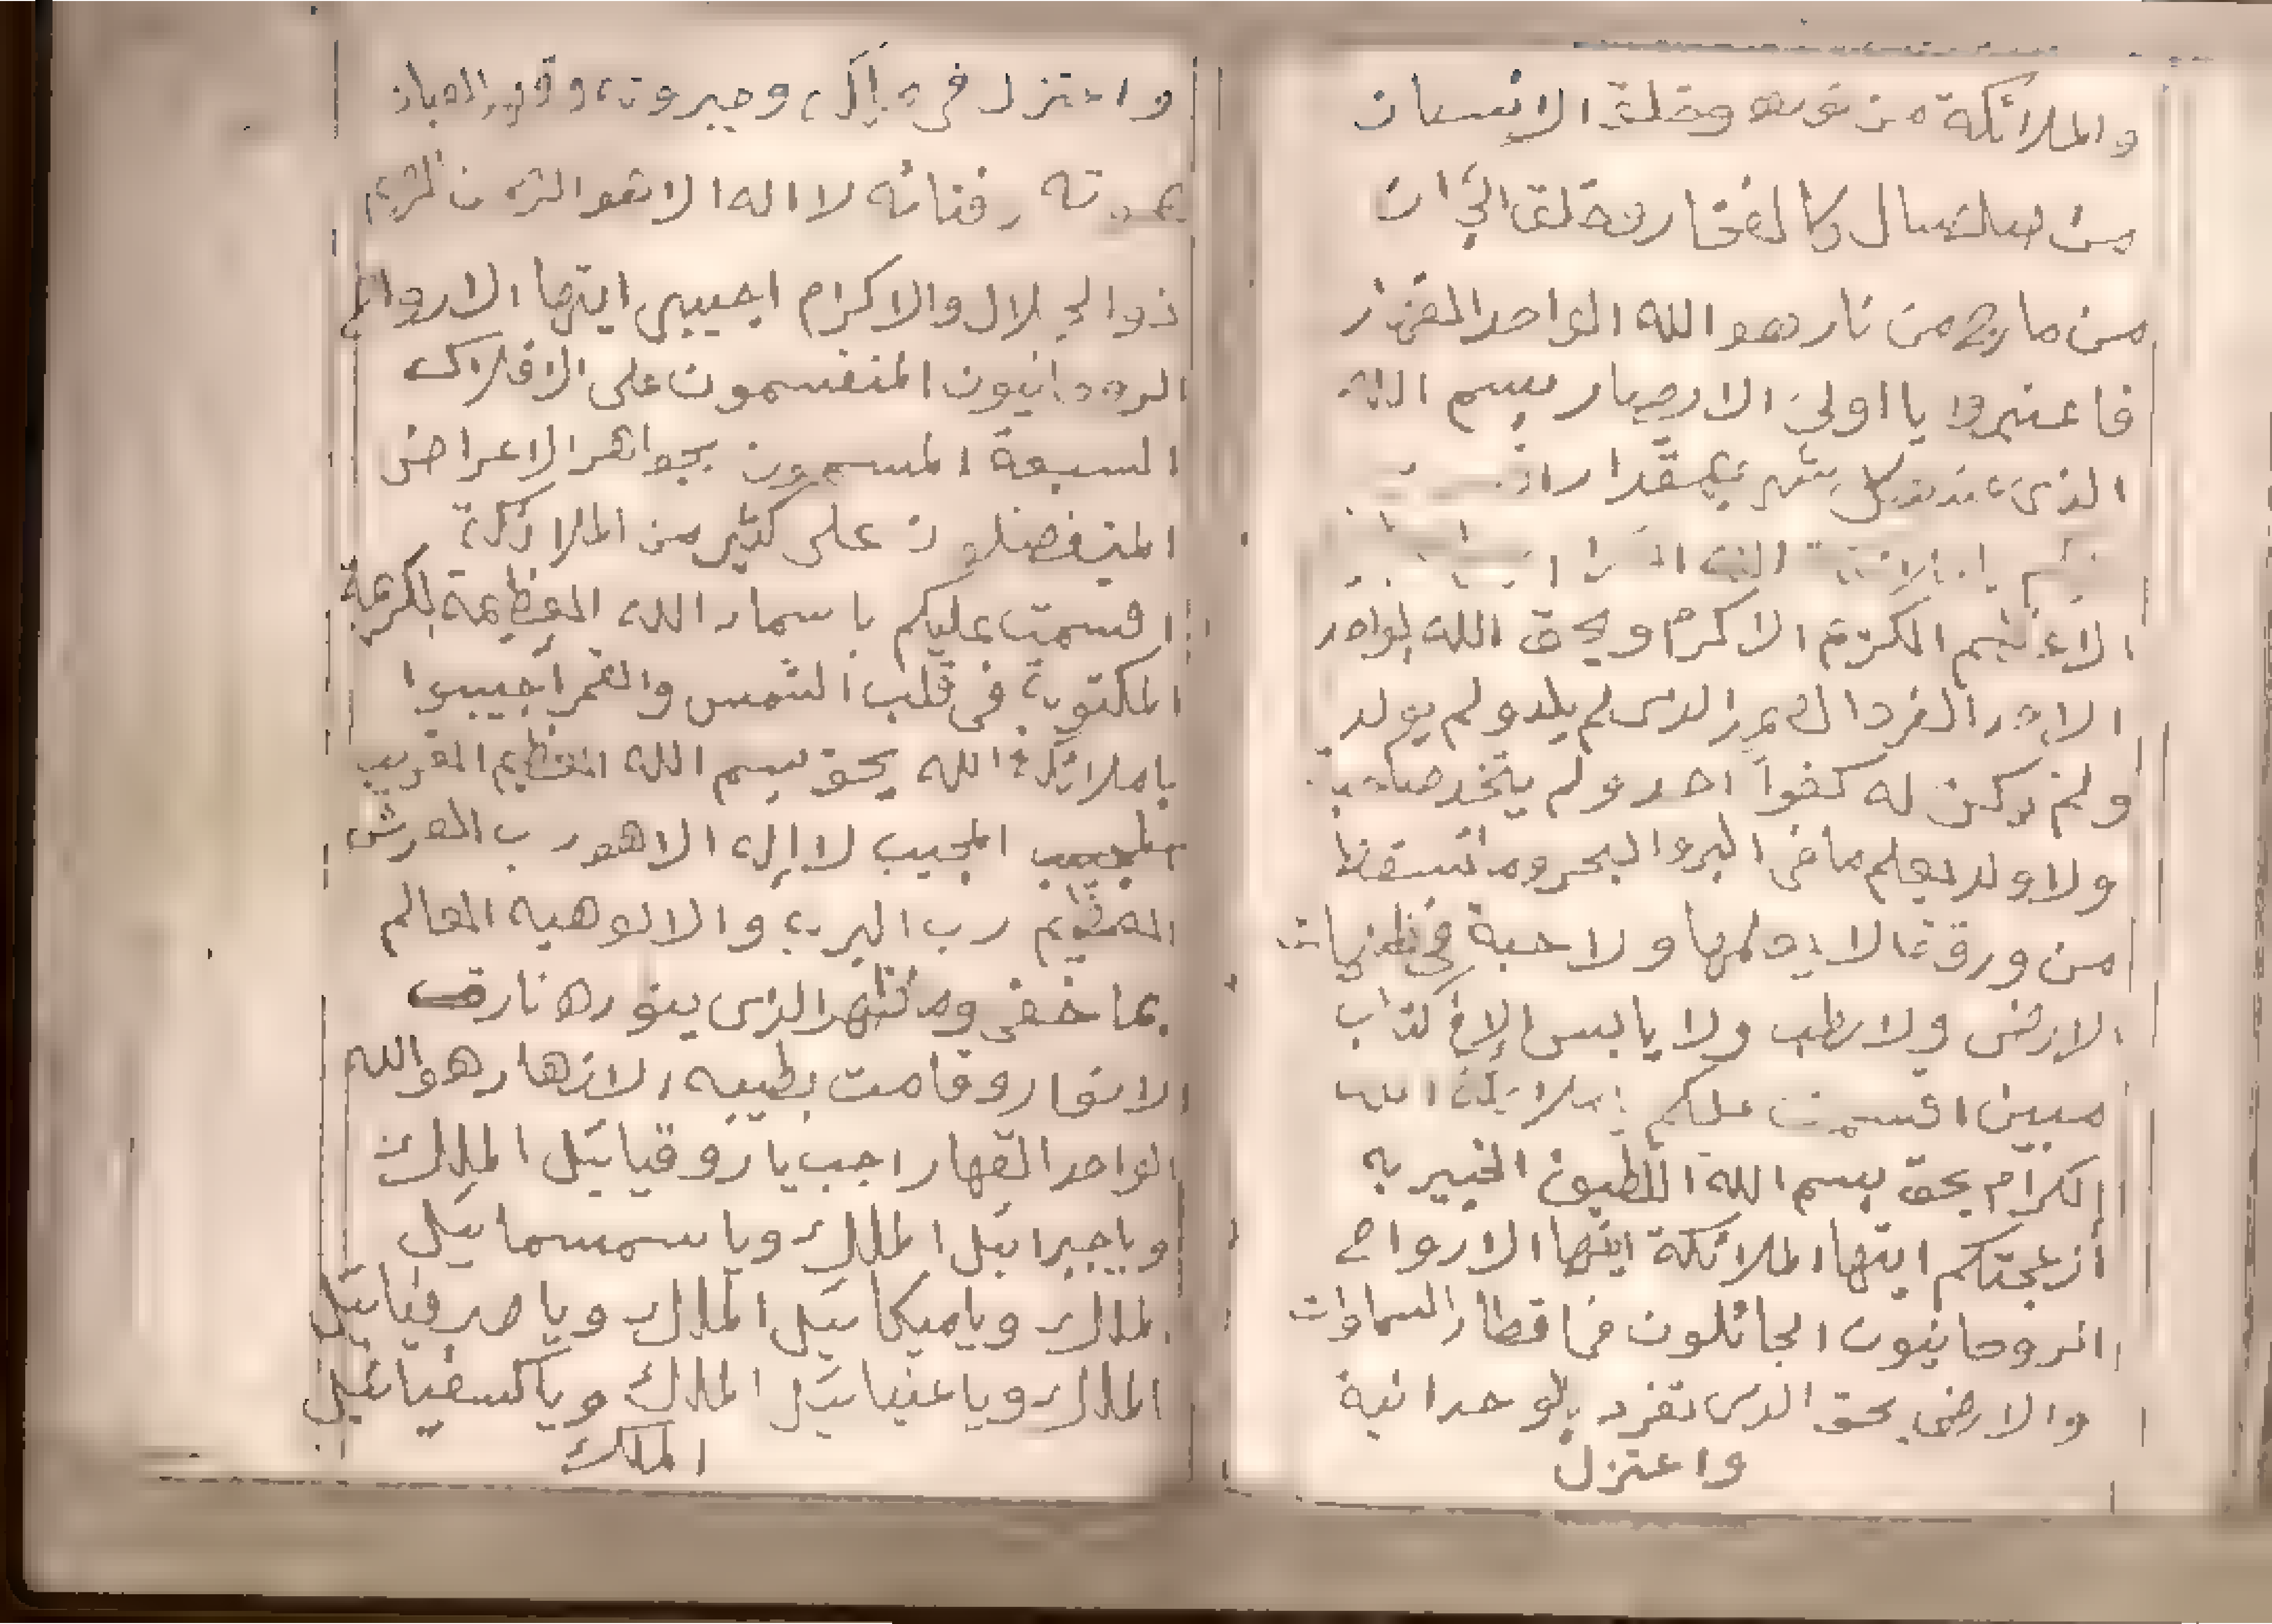 والملائكة من نوره وخلق الانسان
من صلصال كالفخار وخلق الجان
من مارج من نار هو الله الواحد القهار
فاعتبروا يا اولى الابصار بسم الله
الذى عنده كل شىء بمقدار
الاعظم المكرم الاكرم وبحق الله الواحد
الاحد الفرد الصمد الذى لم يلد ولم يولد
ولم يكن له كفواً احد ولم يتخذ صاحبة
ولا ولد يعلم ما فى البر والبحر وما تسقط
من ورقة الا يعلمها ولا حبة فى ظلمات
الارض ولا رطب ولا يابس الا فى كتاب
مبين اقسمت عليكم يا ملائكة الله
الكرام بحق بسم الله اللطيف الخبير به
ازعجتكم ايتها الملائكة ايتها الارواح
الروحانيون الجائلون فى اقطار السماوات
والارض بحق الذى تفرد بالوحدانية
واعتزل
واعتزل فى وجبروته وقهر العباد
لا اله الا هو
ذو الجلال والاكرام اجيبى ايتها الارواح
الروحانيون المنقسمون على الافلاك
السبعة المسمون بجواهر الاعراض
المتفضلون على كثير من الملائكة
اقسمت عليكم باسماء الله العظيمة الكريمة
المكتوبة فى قلب الشمس والقمر اجيبوا
يا ملائكة الله بحق بسم الله العظيم القريب
المجيب لا إله الا هو رب العرش
العظيم رب البرية والالوهيه العالم
بما خفى وما ظهر الذى بنوره نارت
الانوار وقامت بطيبه الازهار هو الله
الواحد القهار اجب يا روقيائيل الملك
ويا جبرائيل الملك ويا سمسمائيل
الملك ويا ميكائيل الملك ويا صرفيائيل
الملك ويا عنيائيل الملك ويا كسفيائيل
الملك